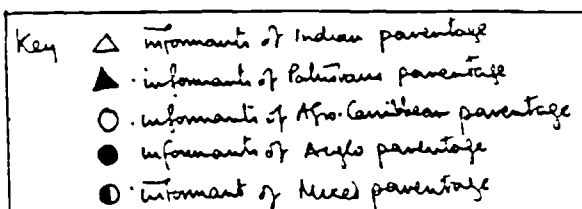 Key △ informants of Indian parentage
▲ · informants of Pakistani parentage
○ · informants of Afro-Carribbean parentage
● informants of Anglo parentage
◐ · informant of Mixed parentage